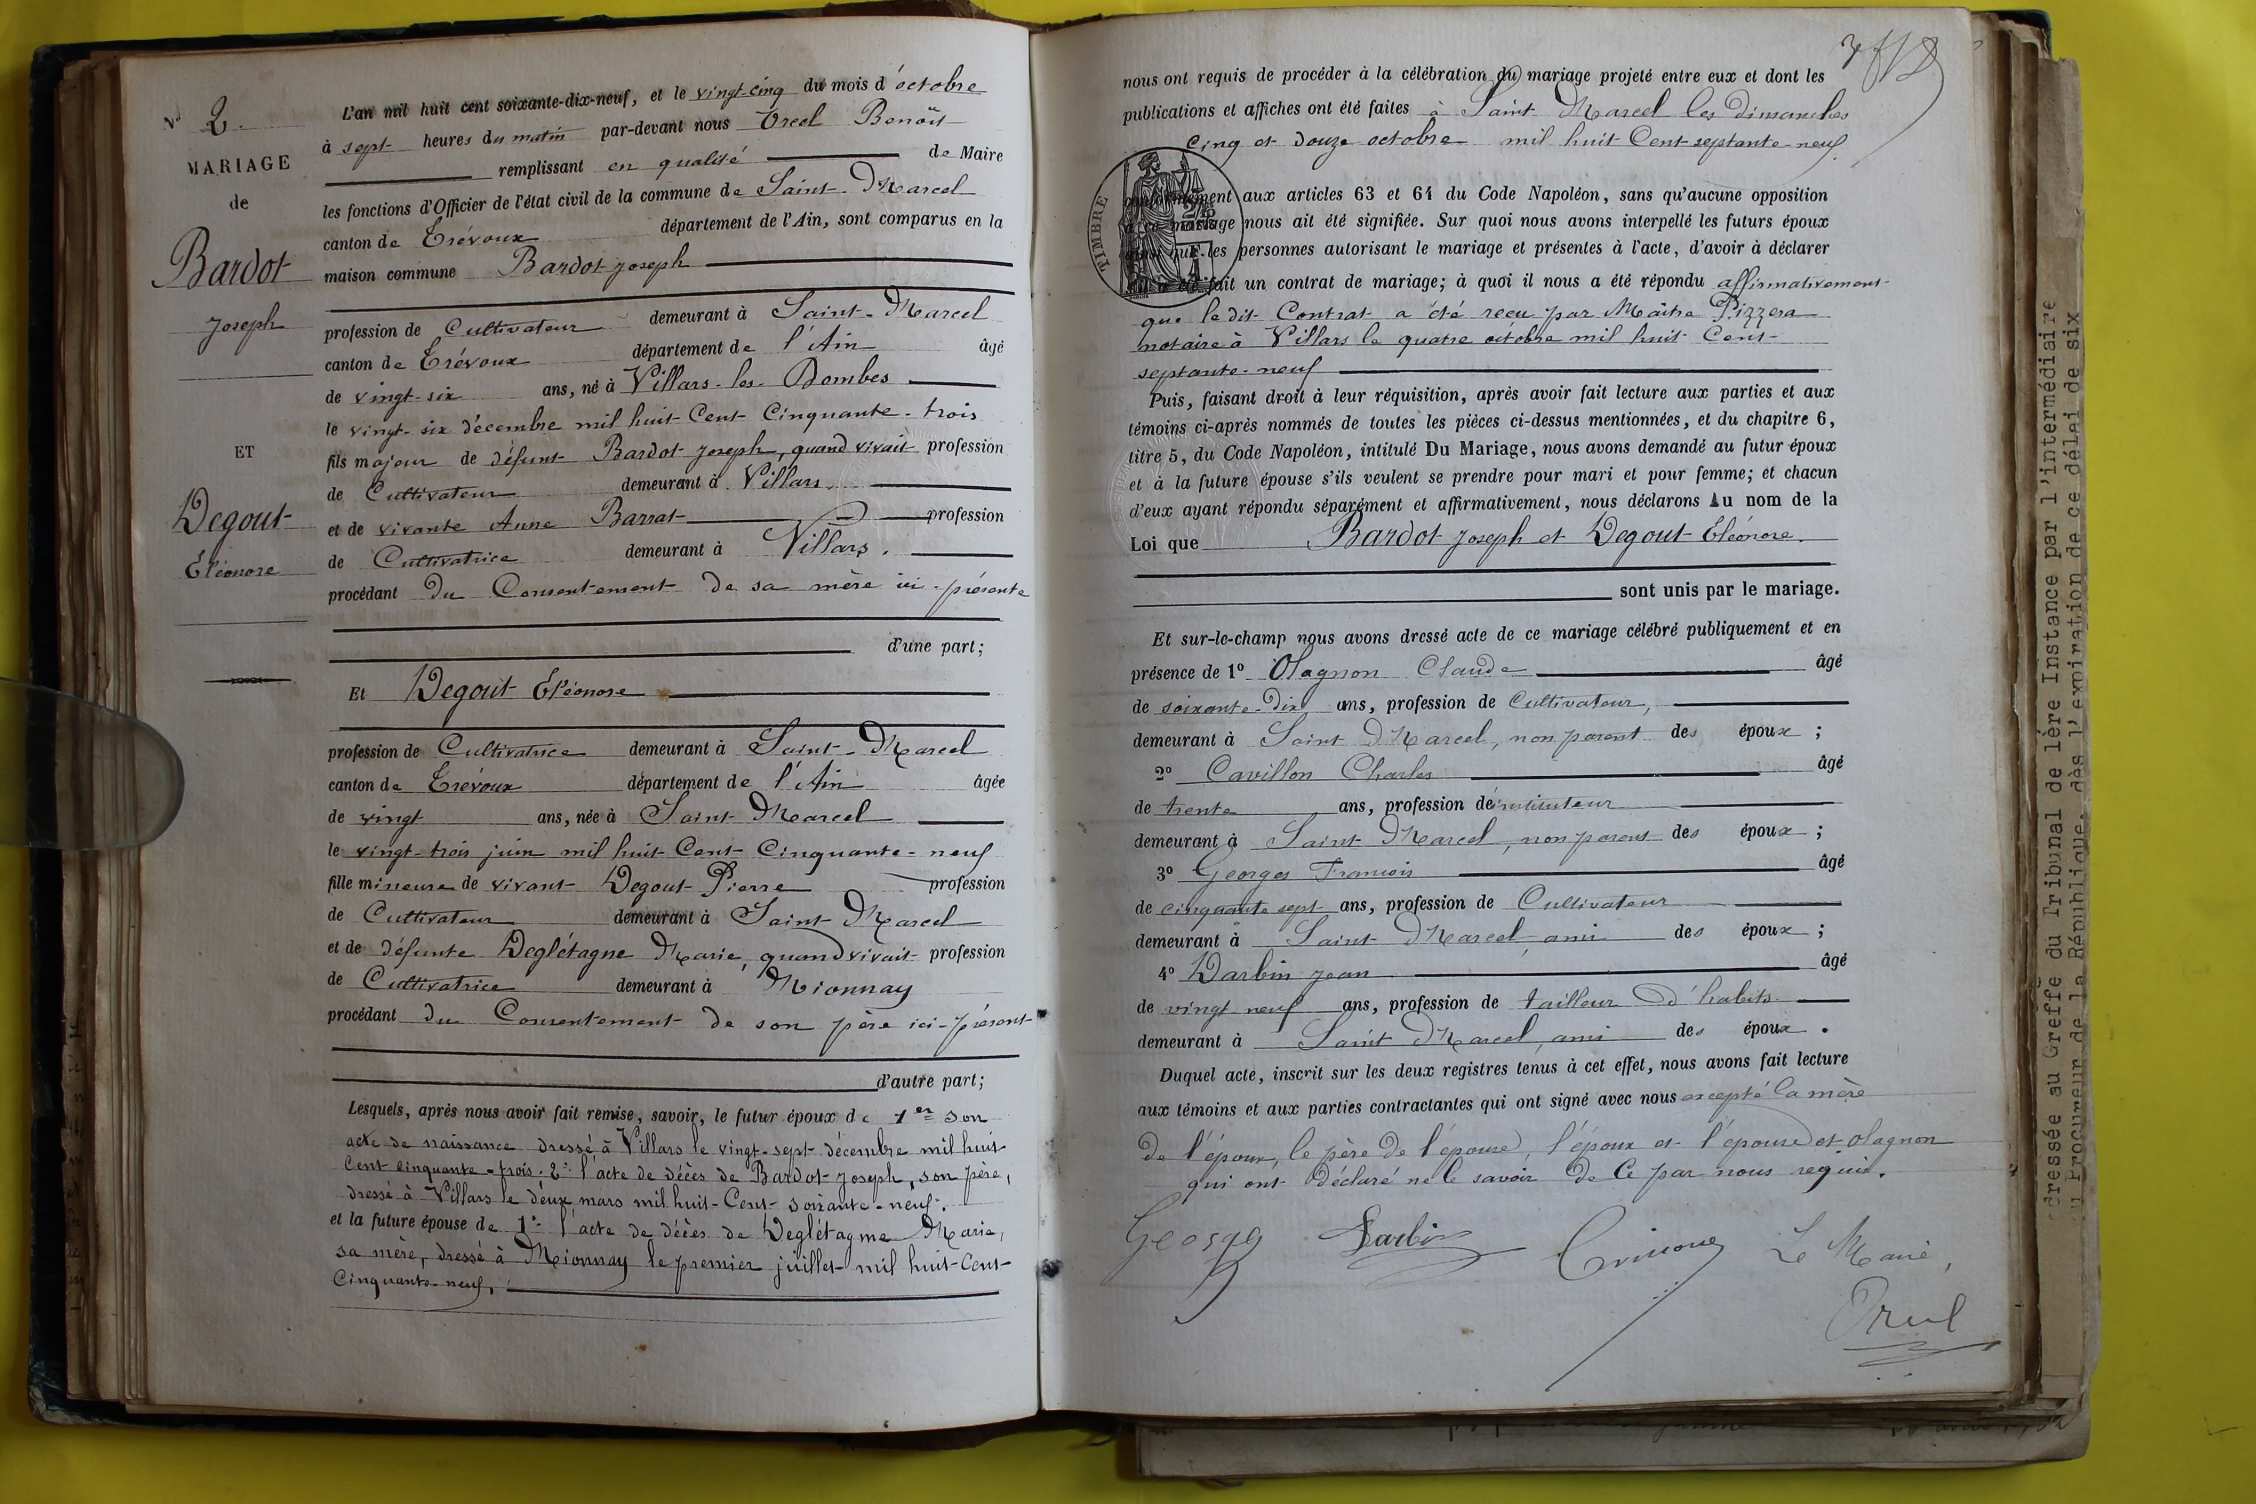 N° 2.
MARIAGE
de
Bardot
Joseph
ET
Degout
Eléonore
L'an mil huit cent soixante-dix-neuf, et le vingt-cinq du mois d'octobre
à sept heures du matin par-devant nous Orcel Benoît
remplissant en qualité de Maire
les fonctions d'Officier de l'état civil de la commune de Saint-Marcel
canton de Trévoux département de l'Ain, sont comparus en la
maison commune Bardot Joseph
profession de Cultivateur demeurant à Saint-Marcel
canton de Trévoux département de l'Ain âgé
de vingt-six ans, né à Villars-les-Dombes
le vingt-six décembre mil huit Cent Cinquante-trois
fils majeur de défunt Bardot Joseph, quand vivait profession
de Cultivateur demeurant à Villars
et de vivante Anne Barrat profession
de Cultivatrice demeurant à Villars.
procédant du Consentement de sa mère ici-présente
d'une part;
Et Degout Eléonore
profession de Cultivatrice demeurant à Saint-Marcel
canton de Trévoux département de l'Ain âgée
de vingt ans, née à Saint Marcel
le vingt-trois juin mil huit Cent Cinquante-neuf
fille mineure de vivant Degout Pierre profession
de Cultivateur demeurant à Saint Marcel
et de défunte Deglétagne Marie, quand vivait profession
de Cultivatrice demeurant à Mionnay
procédant du Consentement de son père ici-présent
d'autre part;
Lesquels, après nous avoir fait remise, savoir, le futur époux de 1er son
acte de naissance dressé à Villars le vingt-sept décembre mil huit
Cent cinquante-trois. 2° l'acte de décès de Bardot Joseph, son père,
dressé à Villars le deux mars mil huit-Cent-soixante-neuf.
et la future épouse de 1° l'acte de décès de Deglétagne Marie,
sa mère, dressé à Mionnay le premier juillet mil huit-Cent-
Cinquante-neuf.
nous ont requis de procéder à la célébration du mariage projeté entre eux et dont les
publications et affiches ont été faites à Saint Marcel les dimanches
cinq et douze octobre mil huit Cent septante-neuf
TIMBRE
conformément aux articles 63 et 64 du Code Napoléon, sans qu'aucune opposition
à ce mariage nous ait été signifiée. Sur quoi nous avons interpellé les futurs époux
ainsi que les personnes autorisant le mariage et présentes à l'acte, d'avoir à déclarer
s'il a été fait un contrat de mariage; à quoi il nous a été répondu affirmativement
que le dit Contrat a été reçu par Maître Pizzera
notaire à Villars le quatre octobre mil huit Cent-
septante-neuf
Puis, faisant droit à leur réquisition, après avoir fait lecture aux parties et aux
témoins ci-après nommés de toutes les pièces ci-dessus mentionnées, et du chapitre 6,
titre 5, du Code Napoléon, intitulé Du Mariage, nous avons demandé au futur époux
et à la future épouse s'ils veulent se prendre pour mari et pour femme; et chacun
d'eux ayant répondu séparément et affirmativement, nous déclarons Au nom de la
Loi que Bardot Joseph et Degout Eléonore.
sont unis par le mariage.
Et sur-le-champ nous avons dressé acte de ce mariage célébré publiquement et en
présence de 1° Olagnon Claude âgé
de soixante-dix ans, profession de Cultivateur,
demeurant à Saint Marcel, non parent des époux ;
2° Cavillon Charles âgé
de trente ans, profession d'instituteur
demeurant à Saint Marcel, non parent des époux ;
3° Georges François âgé
de cinquante sept ans, profession de Cultivateur
demeurant à Saint Marcel, ami des époux ;
4° Darbin Jean âgé
de vingt neuf ans, profession de tailleur d'habits
demeurant à Saint Marcel, ami des époux.
Duquel acte, inscrit sur les deux registres tenus à cet effet, nous avons fait lecture
aux témoins et aux parties contractantes qui ont signé avec nous excepté la mère
de l'époux, le père de l'épouse, l'époux et l'épouse et Olagnon
qui ont déclaré ne le savoir de Ce par nous requis.
George Darbin Le Maire,
Orcel
dressée au Greffe du Tribunal de 1ère Instance par l'intermédiaire
u Procureur de la République, dès l'expiration de ce délai de six